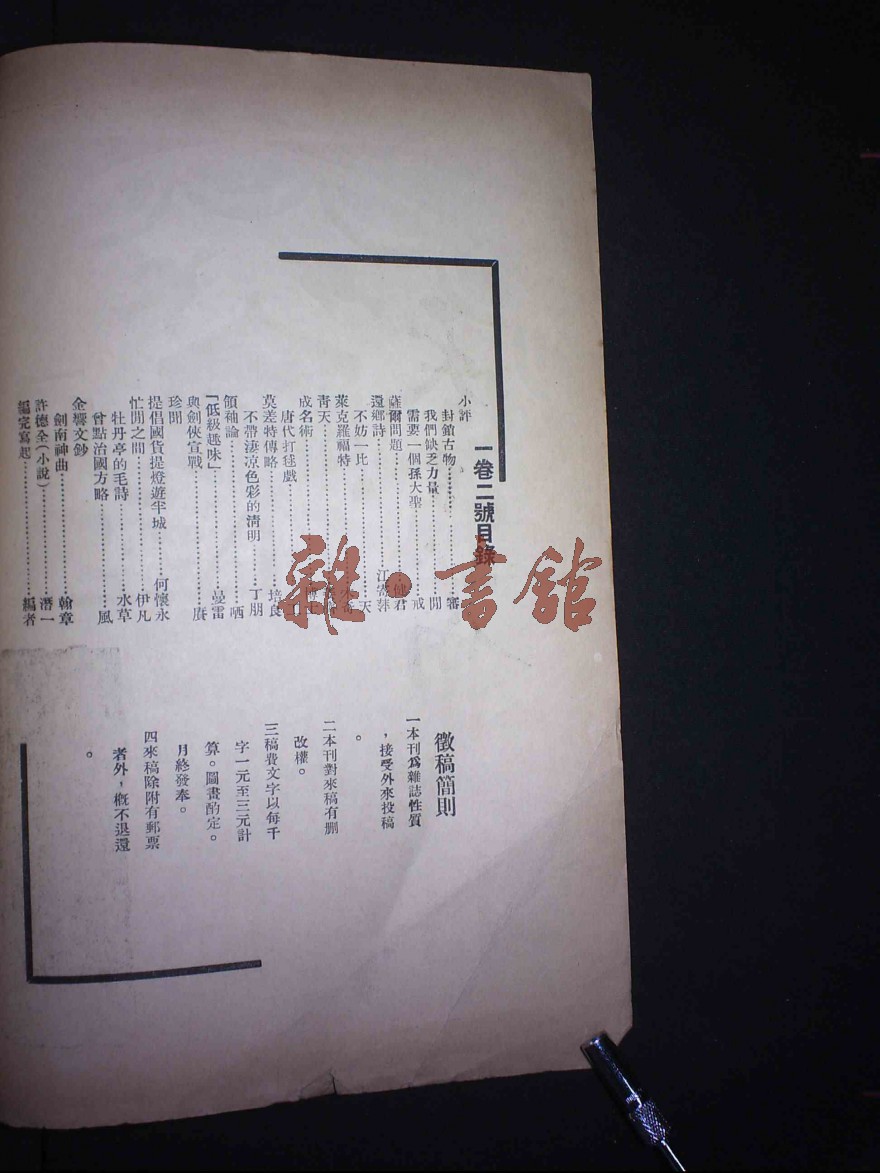 一卷二號目錄
小評
封鎖古物………審
我們缺乏力量………閒
需要一個孫大聖………戒
薩爾問題………健君
還鄉詩………江寄萍
不妨一比………天
萊克羅福特………
青天………
成名術………
唐代打毬戲………
莫差特傳略………培良
不帶淒凉色彩的清明………丁朋
領袖論………哂
「低級趣味」………曼雷
與劍俠宣戰………賡
珍聞
提倡國貨提燈遊半城………何懷永
忙閒之間………伊凡
牡丹亭的毛詩………水草
曾點治國方略………風
金響文鈔
劍南神曲………翰章
許德全(小說)………潛一
編完寫起………編者
徵稿簡則
一本刊爲雜誌性質
，接受外來投稿
。
二本刊對來稿有删
改權。
三稿費文字以每千
字一元至三元計
算。圖畫酌定。
月終發奉。
四來稿除附有郵票
者外，概不退還
。
雜·書館